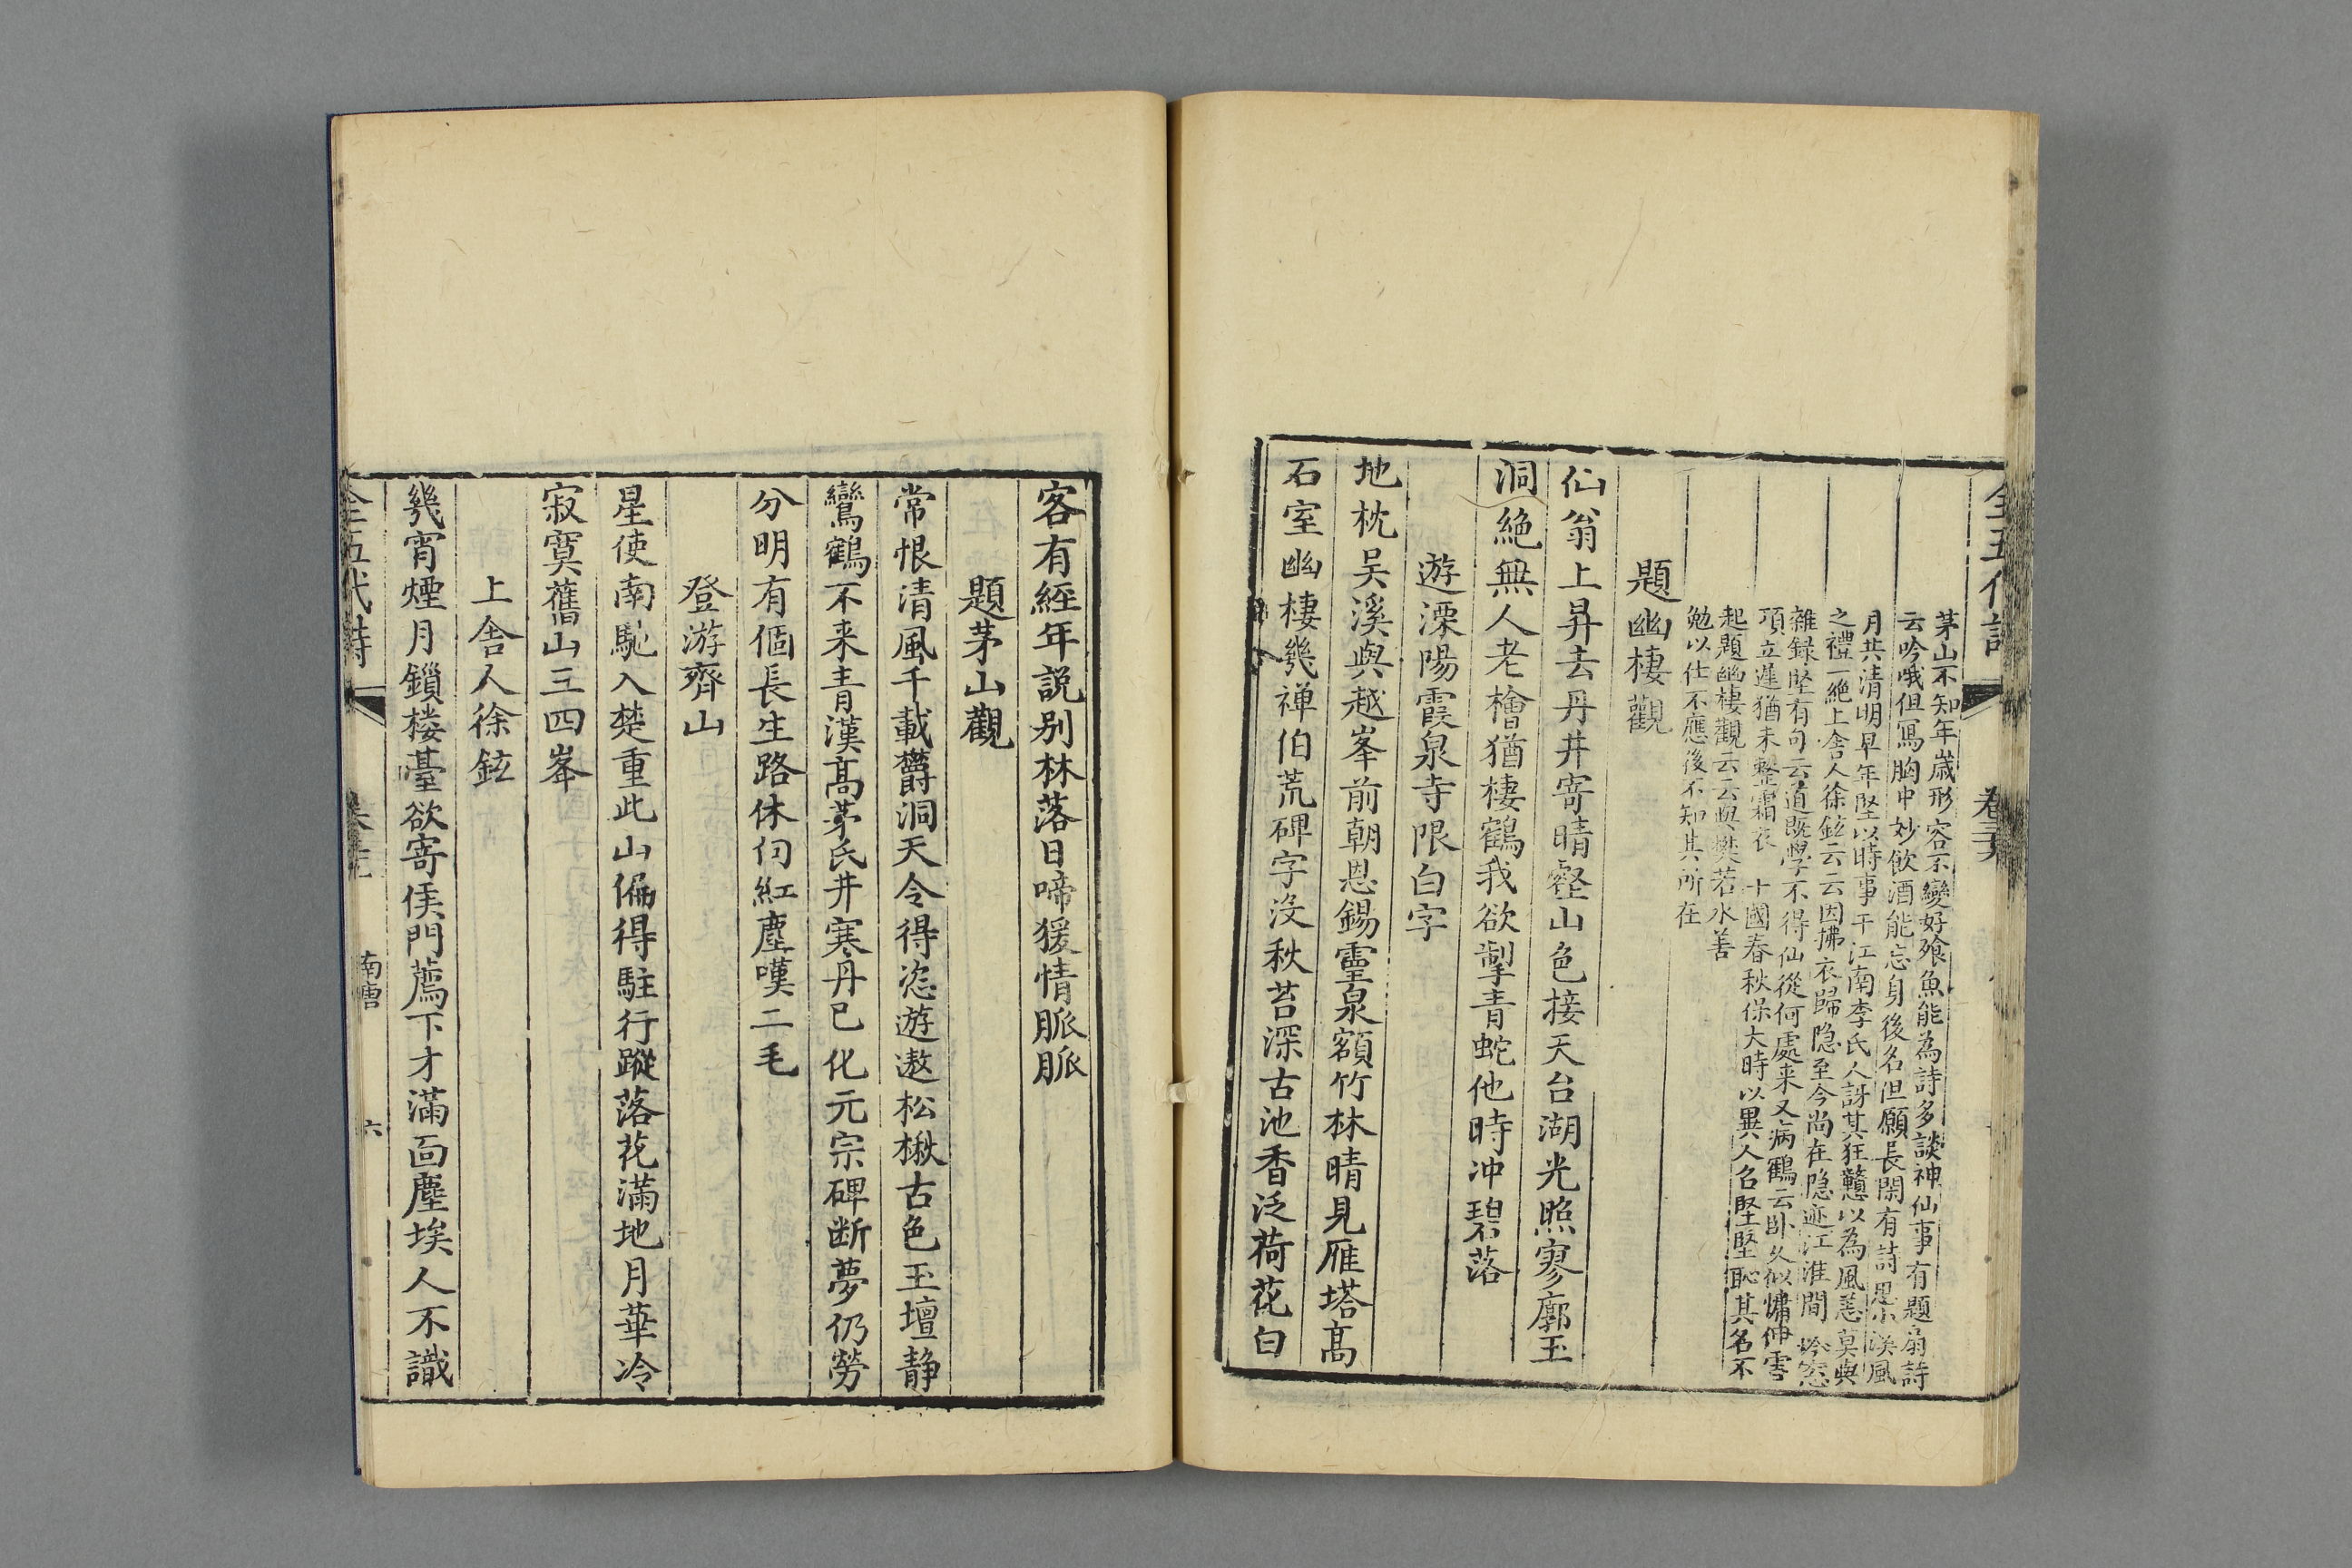 全五代詩
卷
茅山不知年歲形容不變好飱魚能為詩多談神仙事有題扇詩
云吟哦但寫胸中妙飲酒能忘身後名但願長閑有詩思小溪風
月共清明早年堅以時事干江南李氏人訝其狂戇以為風恙莫與
之禮一絶上舍人徐鉉云云因拂衣歸隐至今尚在隐迹江淮間 吟窓
雜録堅有句云道既學不得仙從何處来又病鶴云卧久似慵伸雪
項立遲猶未整霜衣 十國春秋保大時以異人召堅堅恥其名不
起題幽棲觀云云與樊若水善
勉以仕不應後不知其所在
題幽棲觀
仙翁上昇去丹井寄晴壑山色接天台湖光照寥廓玉
洞絶無人老檜猶棲鶴我欲掣青蛇他時沖碧落
遊溧陽霞泉寺限白字
地枕吴溪與越峯前朝恩錫靈泉額竹林晴見雁塔高
石室幽棲幾禅伯荒碑字没秋苔深古池香泛荷花白
客有經年説别林落日啼猨情脈脈
題茅山觀
常恨清風千載欝洞天令得恣遊遨松楸古色玉壇静
鸞鶴不来青漢高茅氏井寒丹已化元宗碑断夢仍勞
分明有個長生路休向紅塵嘆二毛
登游齊山
星使南馳入楚重此山偏得駐行蹤落花滿地月華冷
寂寞舊山三四峯
上舍人徐鉉
幾宵煙月鎖楼臺欲寄侯門薦下才滿面塵埃人不識
全五代詩
南唐
六